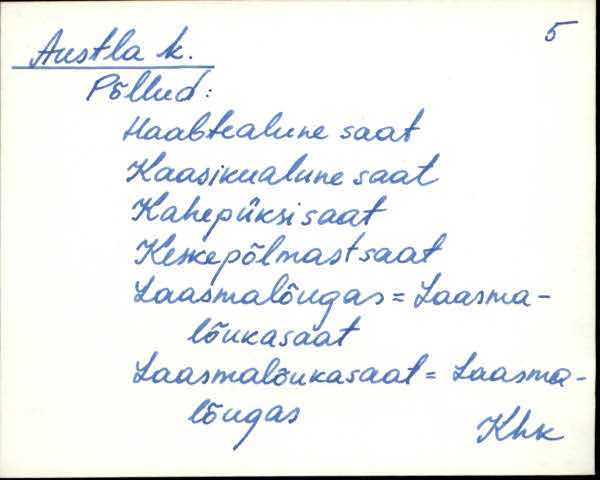 5
Austla k.
Põllud:
Haabtealune saat
Kaasikualune saat
Kahepüksi saat
Keskepõlmast saat
Laasmalõugas = Laasma-
lõukasaat
Laasmalõukasaat = Laasma-
lõugas
Khk